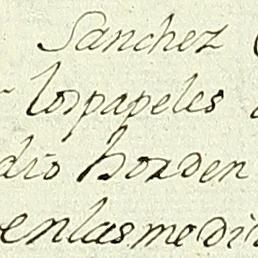 Sanchez
los papeles
dio horden
en las medi